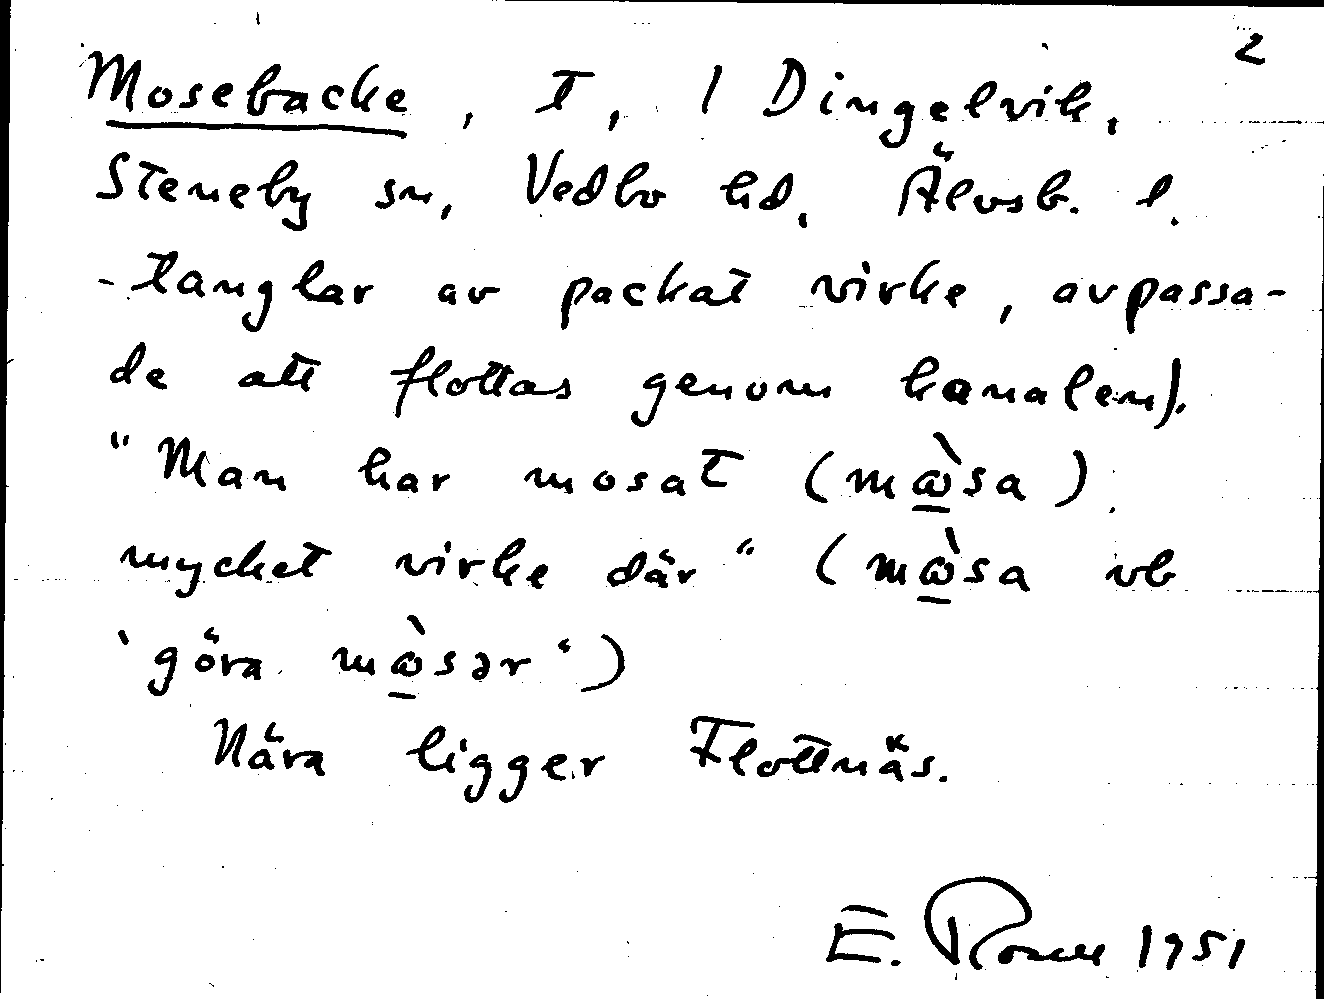 2
Mosebacke, T, 1 Dingelvik,
Steneby sn, Vedbo hd, Älvsb. l.
-tanglar av packat virke, avpassa-
de att flottas genom kanalen).
"Man har mosat (mὼsa)
mycket virke där" (mὼsa vb
'göra mὼsər')
Nära ligger Flottnäs.
E. 1951